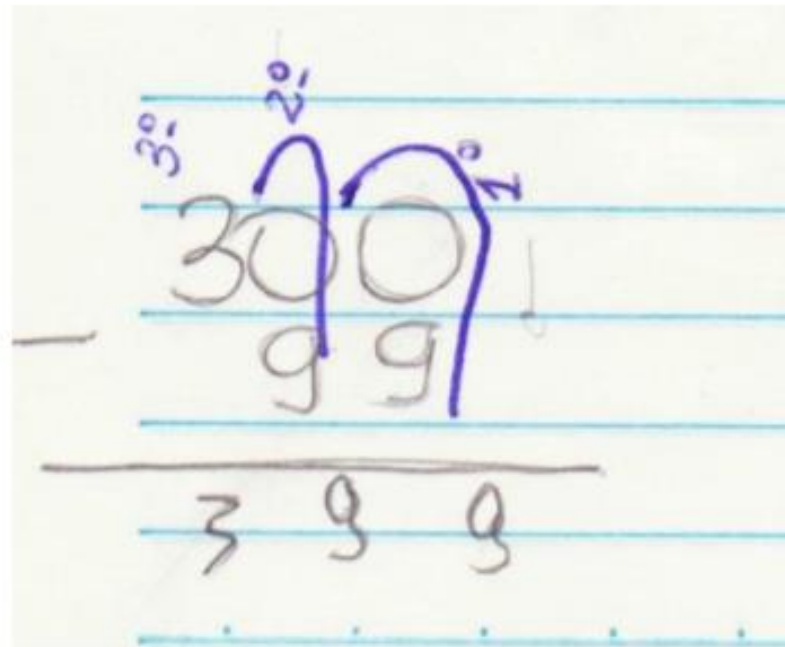 3º 2º 1º
300
- 99
399